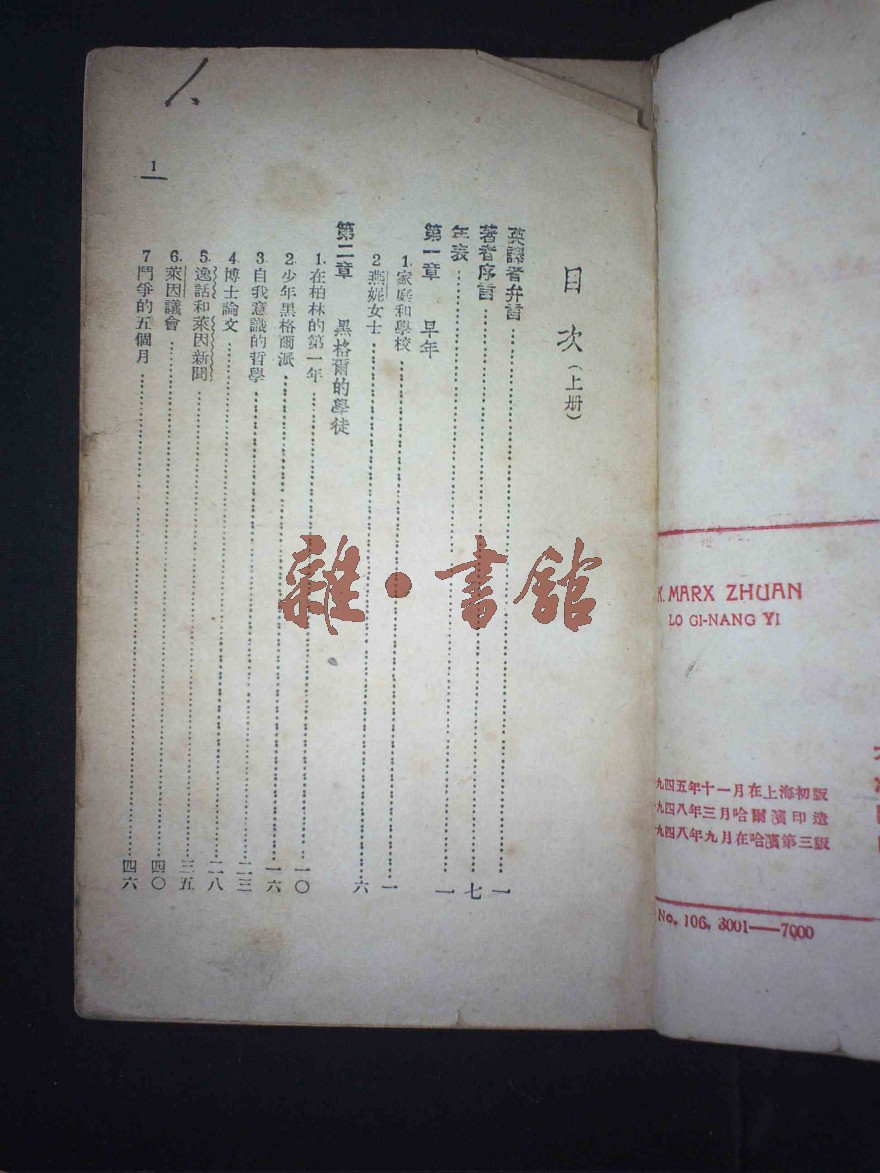 K. MARX ZHUAN
LO GI-NANG YI
九四五年十一月在上海初版
九四八年三月哈爾濱印造
九四八年九月在哈濱第三版
No. 106. 3001——7000
目次(上册)
英譯者弁言 一
著者序言 七
年表 一
第一章 早年
1. 家庭和學校 一
2 燕妮女士 六
第二章 黑格爾的學徒
1. 在柏林的第一年 一〇
2. 少年黑格爾派 一六
3 自我意識的哲學 二三
4 博士論文 二八
5. 逸話和萊因新聞 三五
6. 萊因議會 四〇
7 鬥爭的五個月 四六
1
雜·書館